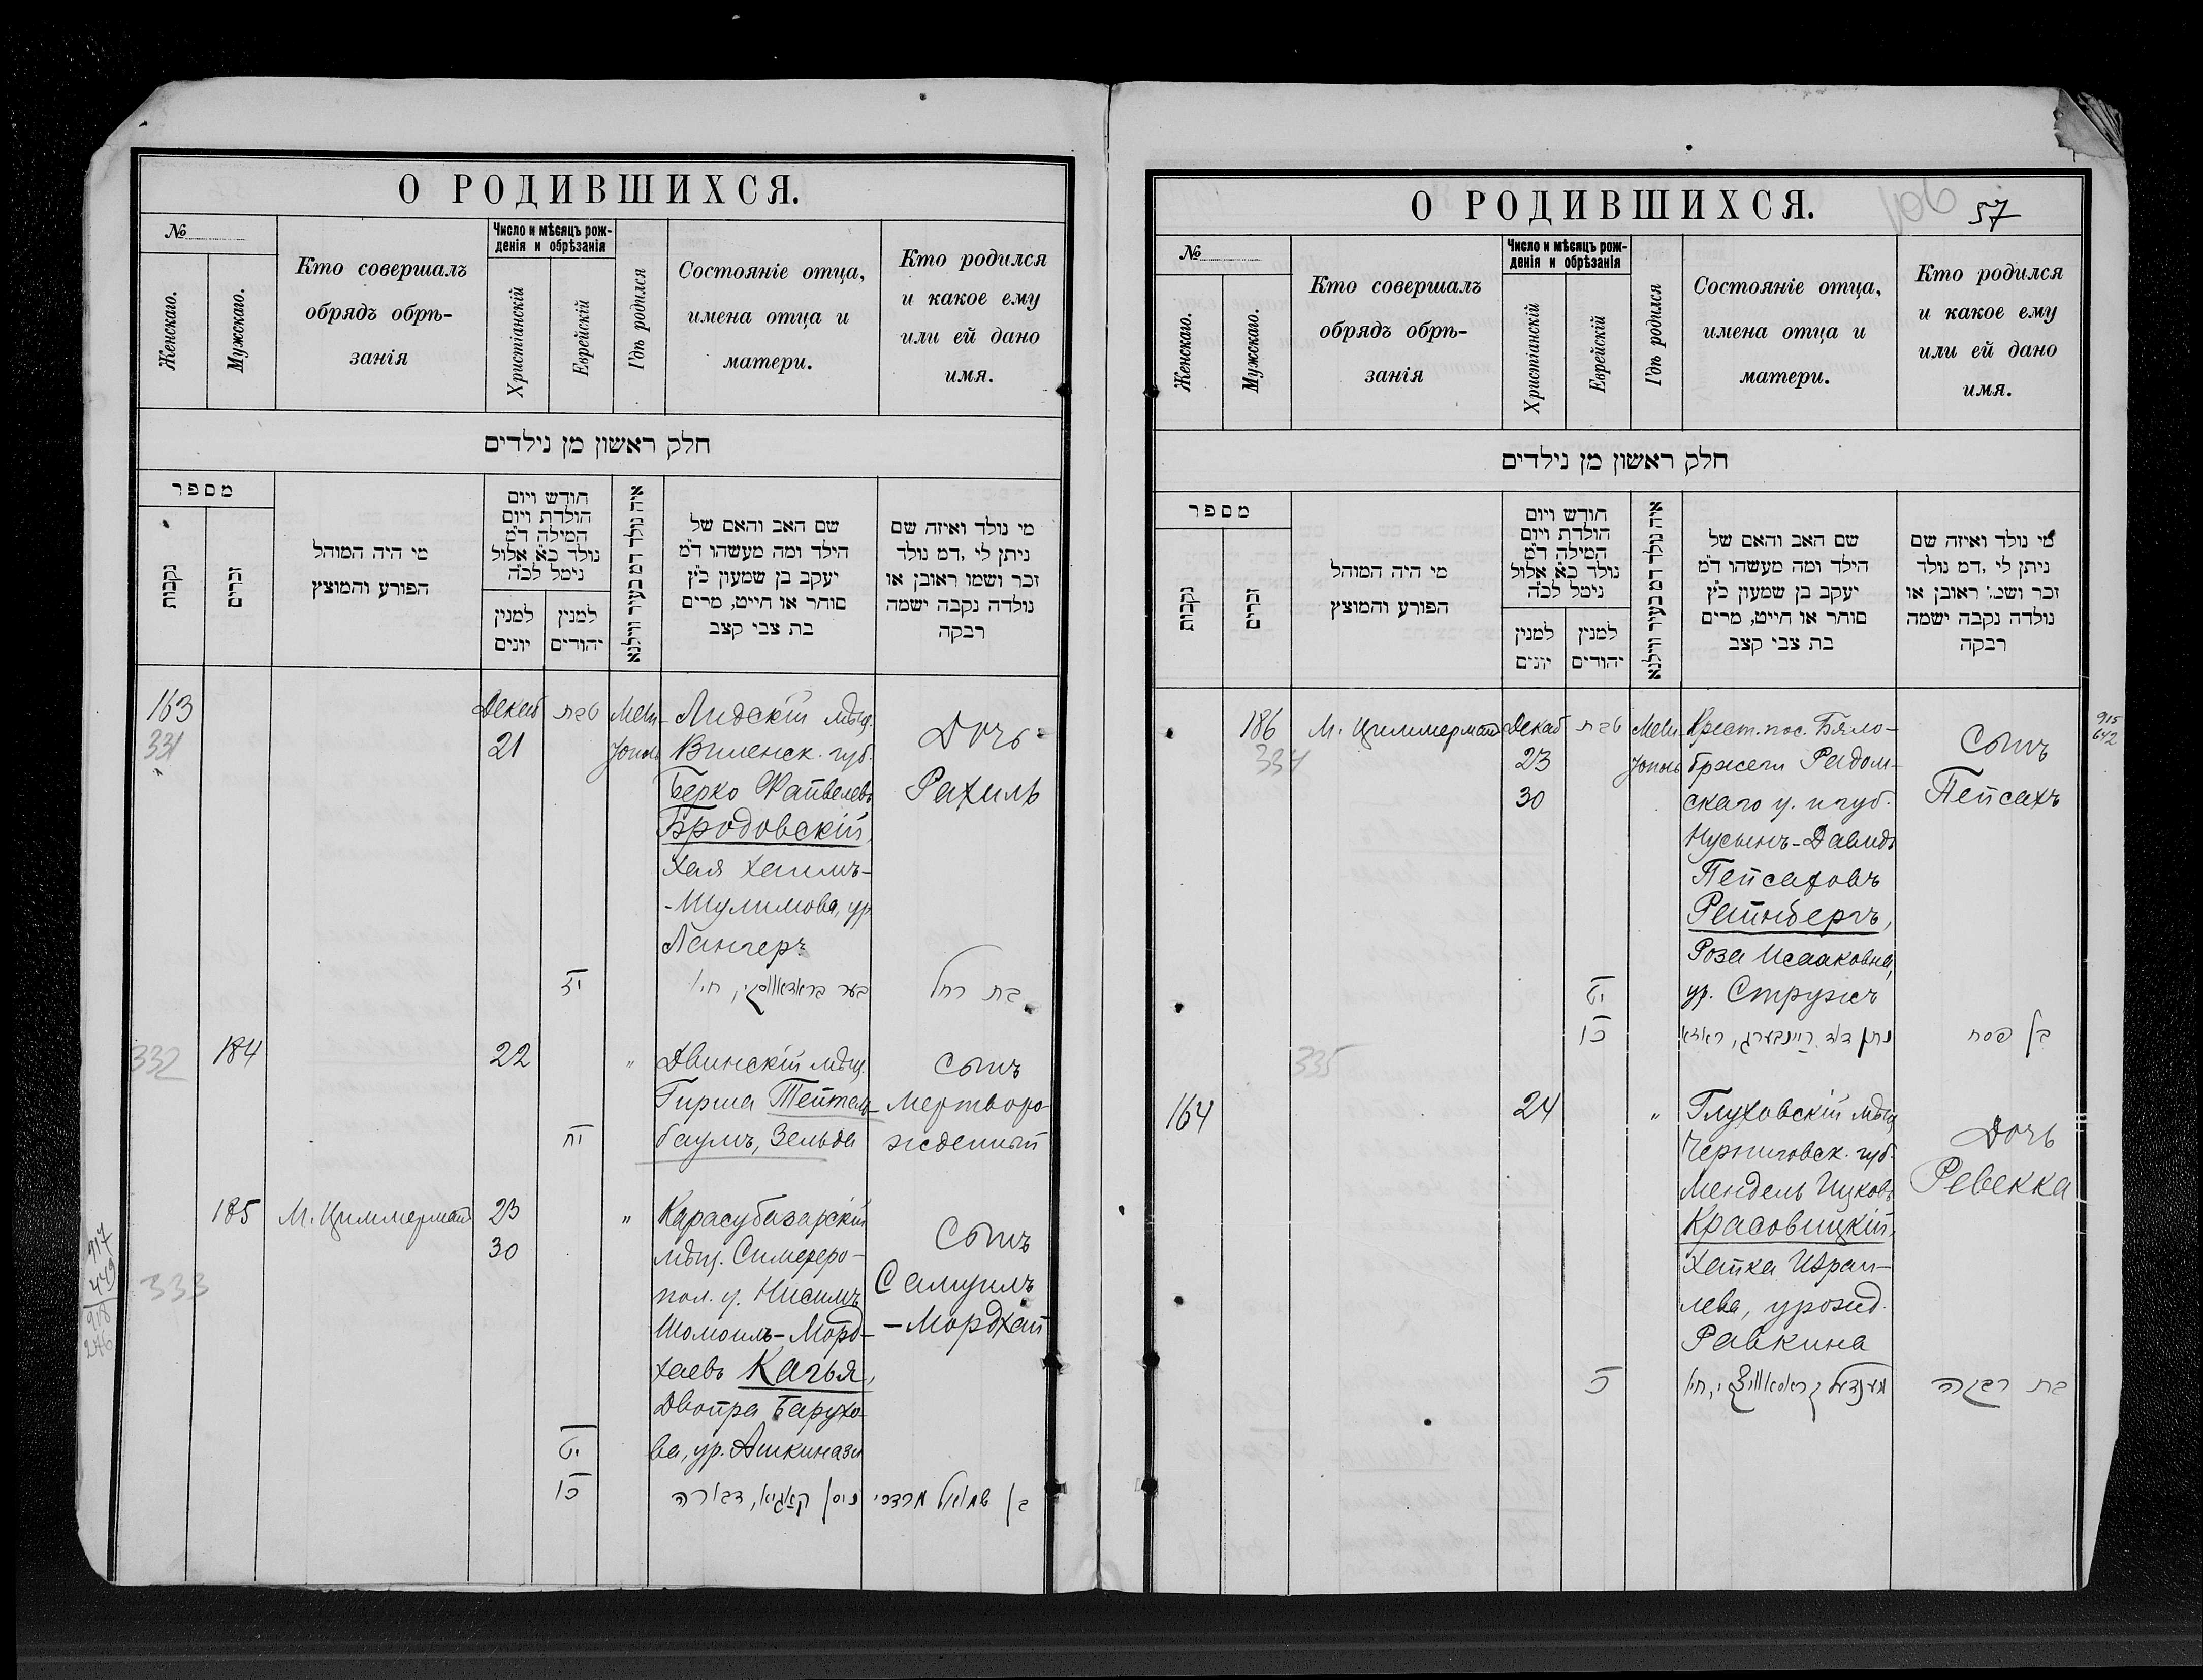 О РОДИВШИХСЯ.
№
Женскаго.
Мужскаго.
Кто совершалъ
обрядъ обрѣ-
занія
Число и мѣсяцъ рож-
денія и обрѣзанія
Христіанскій
Еврейскій
Гдѣ родился
Состояніе отца,
имена отца и
матери.
Кто родился
и какое ему
или ей дано
имя.
חלק ראשון מן נילדים
מספר
נקבות
זכרים
מי היה המוהל
הפורע והמוצץ
חודש ויום
הולדת ויום
המילה ד״מ
נולד כ״א אלול
נימל לכ״ה
למנין
יונים
למנין
יהודים
איה נולד דמ בעיר ווילנא
שם האב והאם של
הילד ומה מעשהו ד״מ
יעקב בן שמעון כ״ץ
סוחר או חייט, מרים
בת צבי קצב
מי נולד ואיזה שם
ניתן לי ,דמ נולד
זכר ושמו ראובן או
נולדה נקבה ישמה
רבקה
163
331
Декаб
21
טבת
יז
Мели-
тополь
Лидскій мѣщ.
Виленск. губ.
Берко Файвелевъ
Бродовскій,
Хая Хаимъ-
-Шулимова, ур.
Лангеръ
בער בראדאווסקי, חי׳
Дочь
Рахиль
בת רחל
332
184
22
יח
"
Двинскій мѣщ.
Гирша Тейтель-
баумъ, Зельда
Сынъ
мертворо-
жденный
917
449
918
276
333
185
М. Циммерманъ
23
30
יט
כו
"
Карасубазарскій
мѣщ. Симферо-
пол. у. Нисимъ
Шомоилъ-Морд-
хаевъ Качья,
Двойра Барухо-
ва, ур. Ашкинази
ניסן קאגיא, דבורה
Сынъ
Самуилъ
-Мордхай
בן שמואל מרדכי
О РОДИВШИХСЯ.
106
57
№
Женскаго.
Мужскаго.
Кто совершалъ
обрядъ обрѣ-
занія
Число и мѣсяцъ рож-
денія и обрѣзанія
Христіанскій
Еврейскій
Гдѣ родился
Состояніе отца,
имена отца и
матери.
Кто родился
и какое ему
или ей дано
имя.
חלק ראשון מן נילדים
מספר
נקבות
זכרים
מי היה המוהל
הפורע והמוצץ
חודש ויום
הולדת ויום
המילה ד״מ
נולד כ״א אלול
נימל לכ״ה
למנין
יונים
למנין
יהודים
איה נולד דמ בעיר ווילנא
שם האב והאם של
הילד ומה מעשהו ד״מ
יעקב בן שמעון כ״ץ
סוחר או חייט, מרים
בת צבי קצב
מי נולד ואיזה שם
ניתן לי ,דמ נולד
זכר ושמו ראובן או
נולדה נקבה ישמה
רבקה
186
334
М. Циммерманъ
Декаб
23
30
טבת
יט
כו
Мели-
тополь
Крест. пос. Бяло-
бржеги Радом-
скаго у. и губ.
Нусынъ-Давидъ
Пейсаховъ
Рейнбергъ,
Роза Исааковна,
ур. Стружъ
נתן דוד ריינבערג, ראזא
Сынъ
Пейсахъ
בן פסח
915
642
335
164
24
כ
"
Глуховскій мѣщ.
Черниговск. губ.
Мендель Ицковъ
Красовицкій,
Хайка Израи-
лева, урожд.
Равкина
מענדעל קראסאוויצקי, חי׳
Дочь
Ревекка
בת רבקה